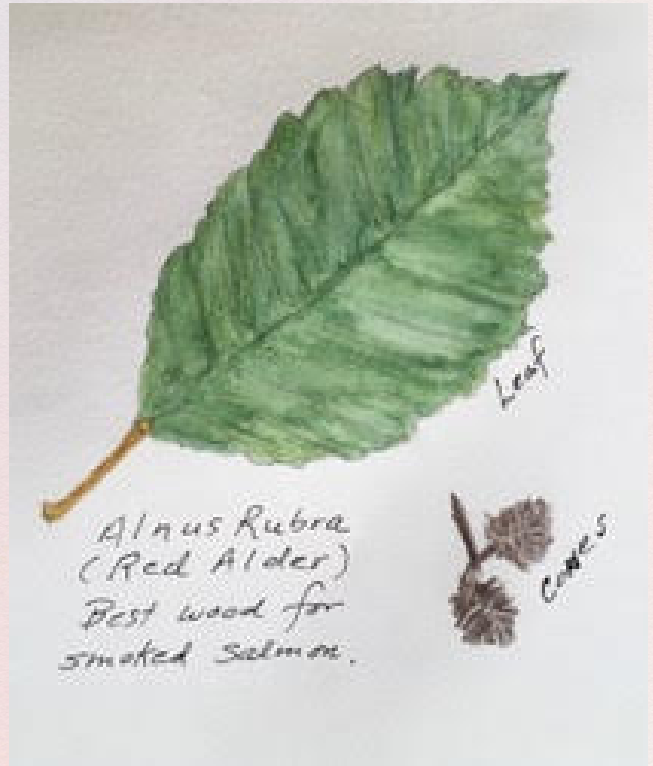 Leaf
Alnus Rubra
(Red Alder)
Best wood for
smoked salmon.
cones